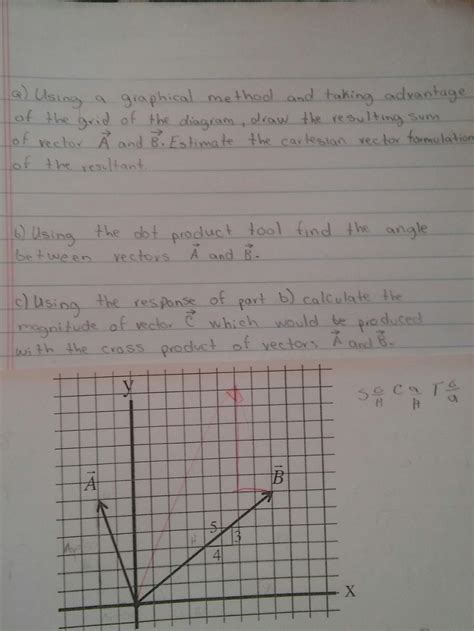 a) Using a graphical method and taking advantage
of the grid of the diagram, draw the resulting sum
of vector A⃗ and B⃗. Estimate the cartesian vector formulation
of the resultant.
b) Using the dot product tool find the angle
between vectors A⃗ and B⃗.
c) Using the response of part b) calculate the
magnitude of vector C⃗ which would be produced
with the cross product of vectors A⃗ and B⃗.
y
S o/H C a/H T o/a
A⃗
B⃗
5
3
4
x